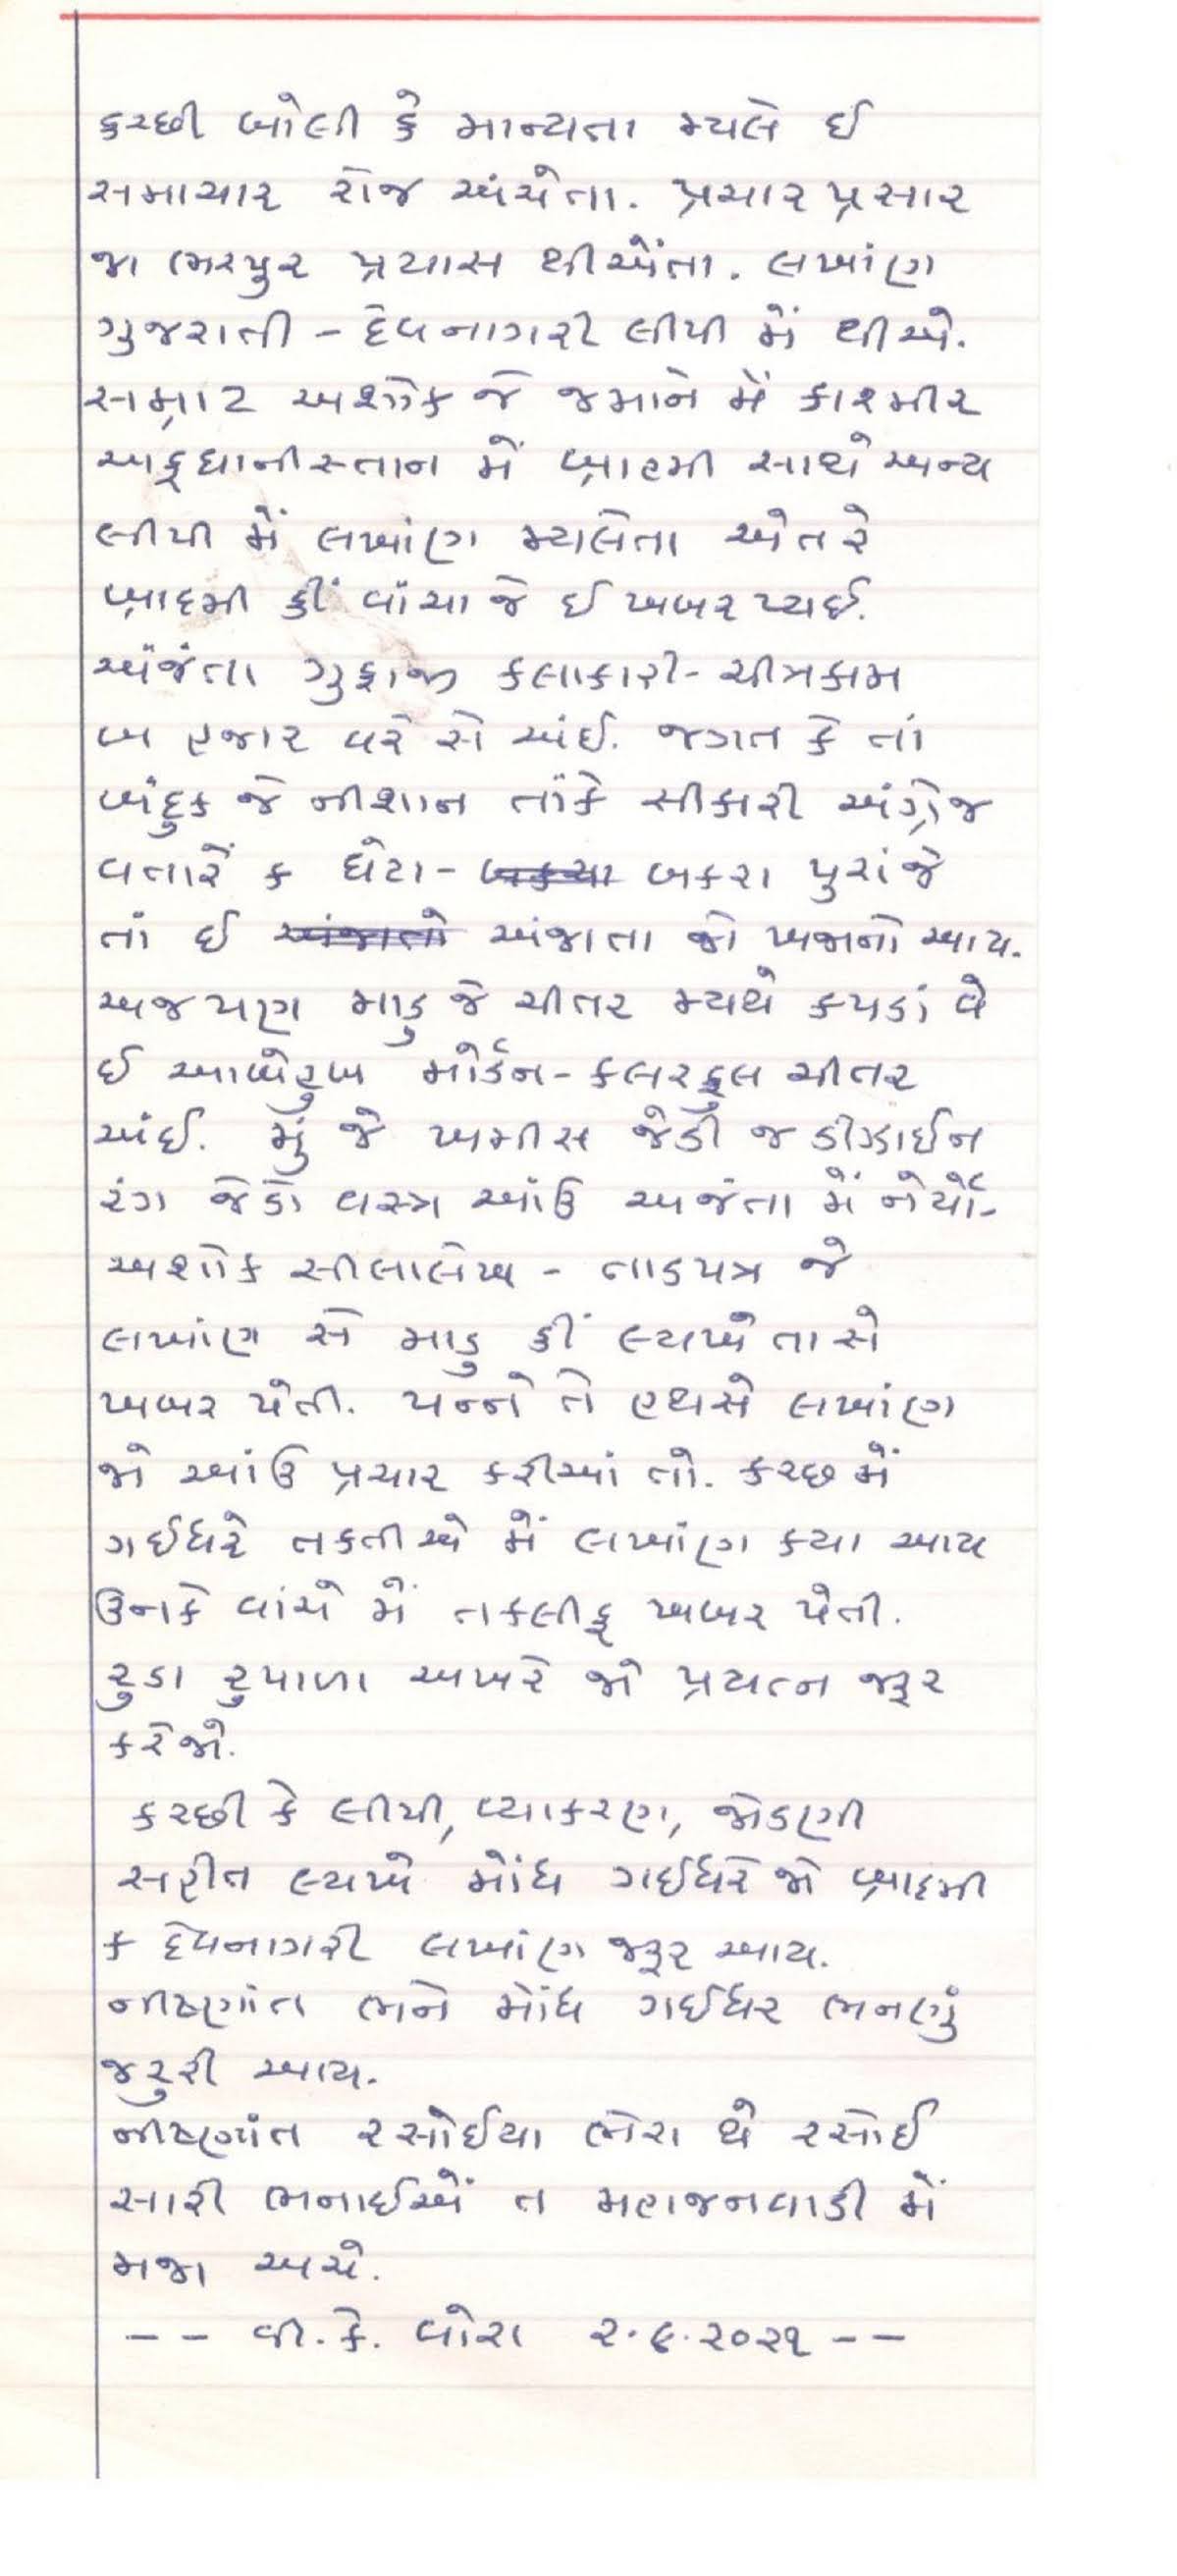 કચ્છી બોલી કે માન્યતા મ્યલે ઈ
સમાચાર રોજ અચેંતા. પ્રચાર પ્રસાર
જા ભરપુર પ્રયાસ થીએંતા. લખાંણ
ગુજરાતી - દેવનાગરી લીપી મેં થીએ.
સમ્રાટ અશોક જે જમાને મેં કાશ્મીર
અફઘાનીસ્તાન મેં બ્રાહમી સાથે અન્ય
લીપી મેં લખાંણ મ્યલેતા એતરે
બ્રાહમી કીં વાંચાજે ઈ ખબર પ્યઈ.
અંજંતા ગુફાજી કલાકારી- ચીત્રકામ
બ હજાર વરે સે અંઈ. જગત કે તાં
બંદુક જે નીશાન તાંકે સીકારી અંગ્રેજ
વતારેં ક ઘેટા- બકરા પુરાંજે
તાં ઈ અંજાતા જો ખજાનો આય.
અજ પણ માડુ જે ચીતર મ્યથે કપડાં વે
ઈ આબેહુબ મોર્ડન - કલરફુલ ચીતર
અંઈ. મું જે ખમીસ જેડી જ ડીઝાઈન
રંગ જેડો વસ્ત્ર આંઉ અજંતા મેં નેર્યો-
અશોક સીલાલેખ - તાડપત્ર જે
લખાંણ સે માડુ કીં લ્યખેં તા સે
ખબર પેતી. પન્ને તે હથસે લખાંણ
જો આંઉ પ્રચાર કરીઆં તો. કચ્છ મેં
ગઈધરે તકતીએ મેં લખાંણ ક્યા આય
ઉનકે વાંચે મેં તકલીફ ખબર પેતી.
રુડા રુપાળા અખરે જો પ્રયત્ન જરૂર
કરેજો.
કચ્છી કે લીપી, વ્યાકરણ, જોડણી
સહીત લ્યખે મોંધ ગઈધરે જો બ્રાહમી
ક દેવનાગરી લખાંણ જરૂર આય.
નીષ્ણાંત ભને મોંધ ગઈધર ભનણું
જરુરી આય.
નીષ્ણાંત રસોઈયા ભેરા થે રસોઈ
સારી ભનાઈએં ત મહાજનવાડી મેં
મજા અચે.
-- વી. કે. વોરા ૨.૬.૨૦૨૧ --